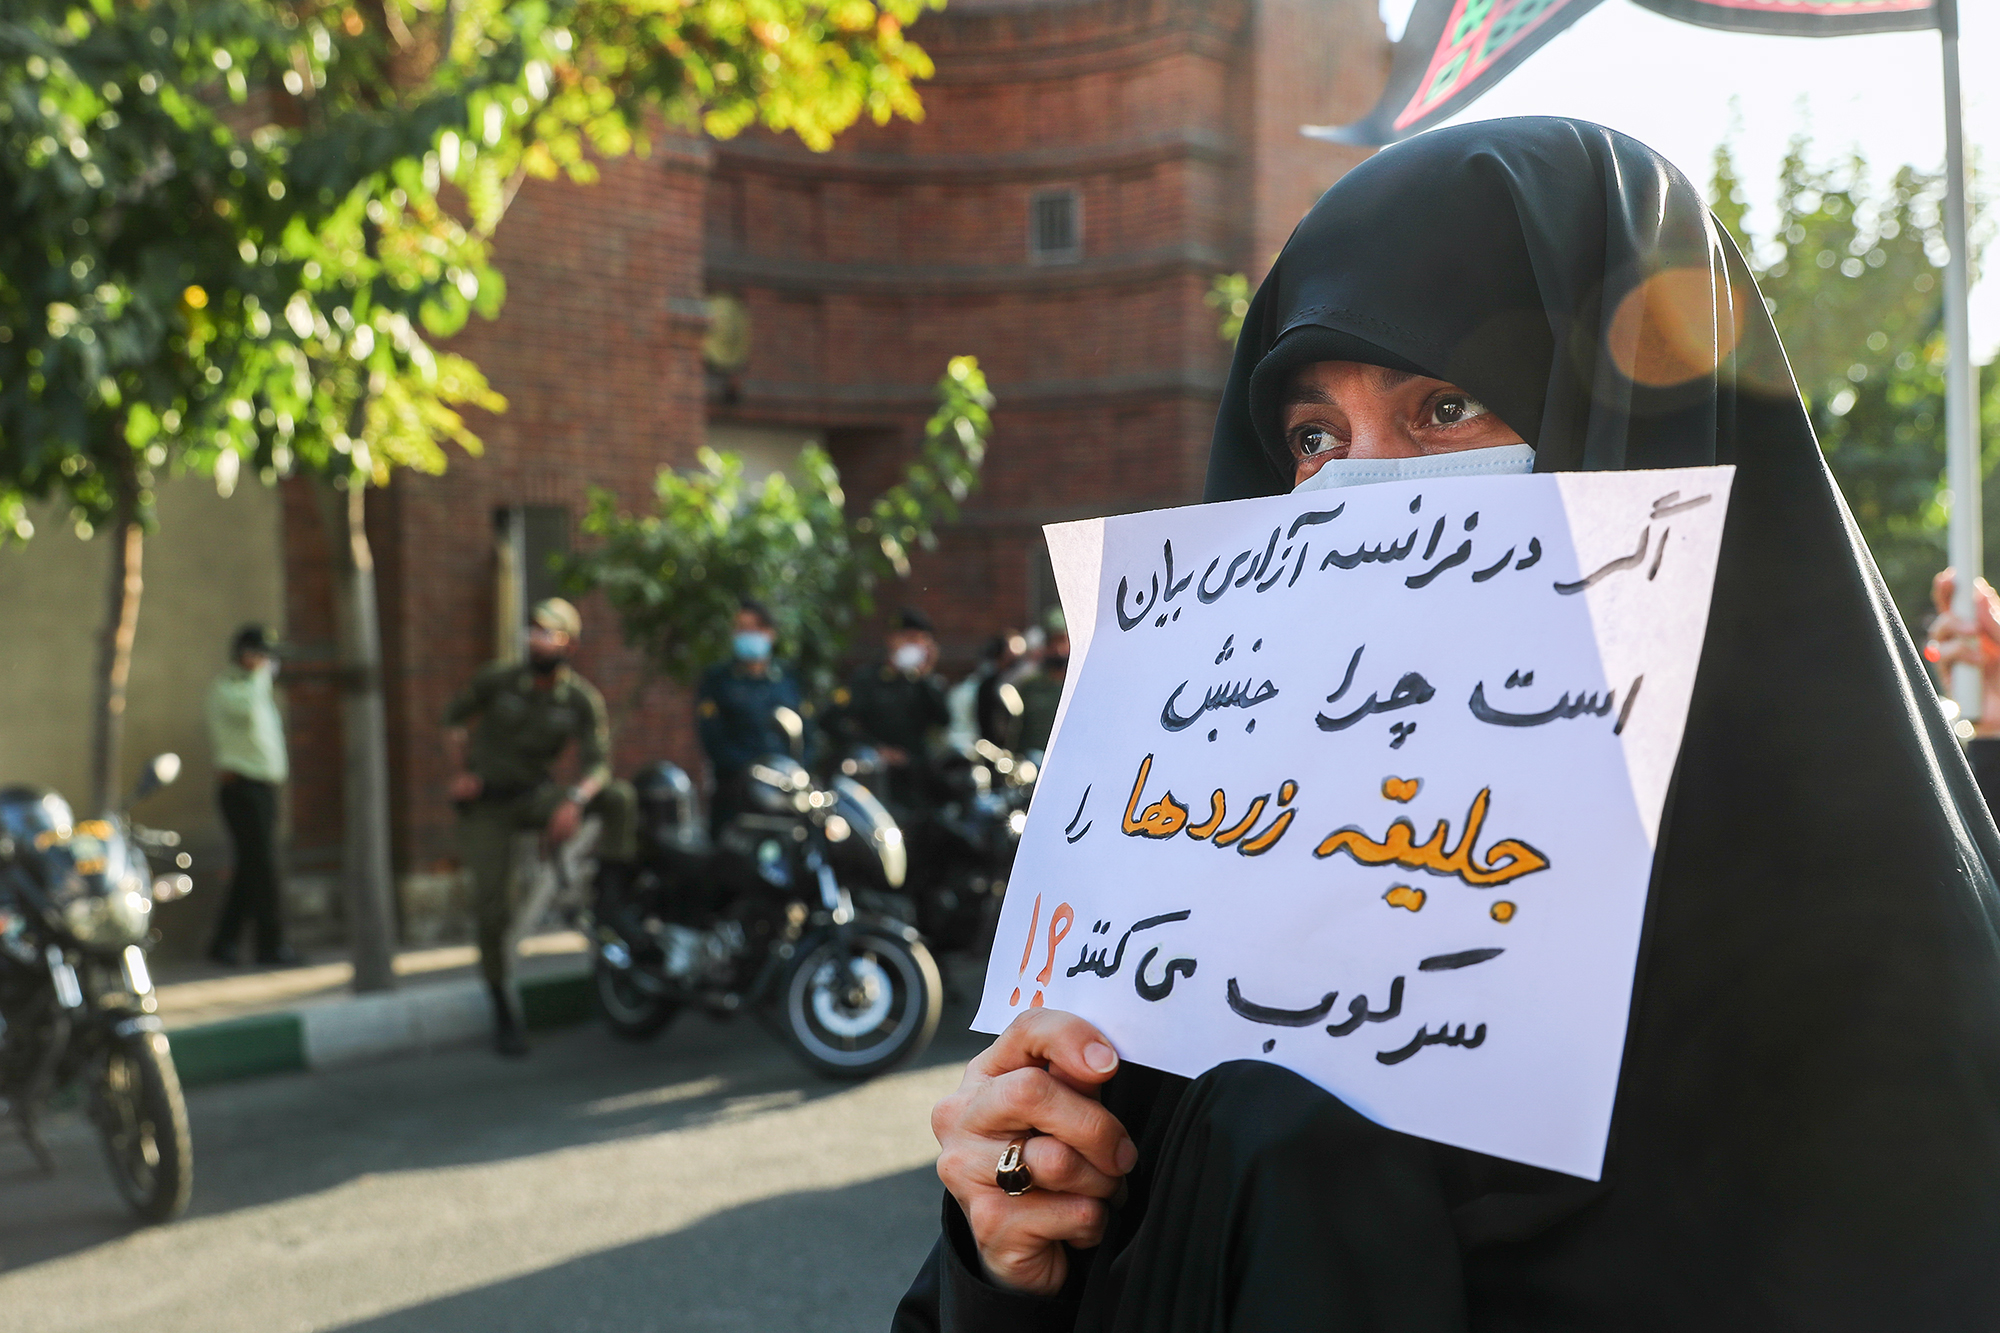 اگر در فرانسه آزادی بیان
است چرا جنبش
جلیقه زردها را
سرکوب می کنند؟!